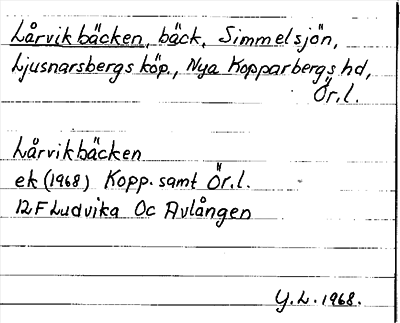 Lårvikbäcken, bäck, Simmelsjön,
Ljusnarsbergs köp., Nya Kopparbergs hd,
Ör.l.
Lårvikbäcken
ek (1968) Kopp. samt Ör.l.
12F Ludvika Oc Avlången
Y.L. 1968.